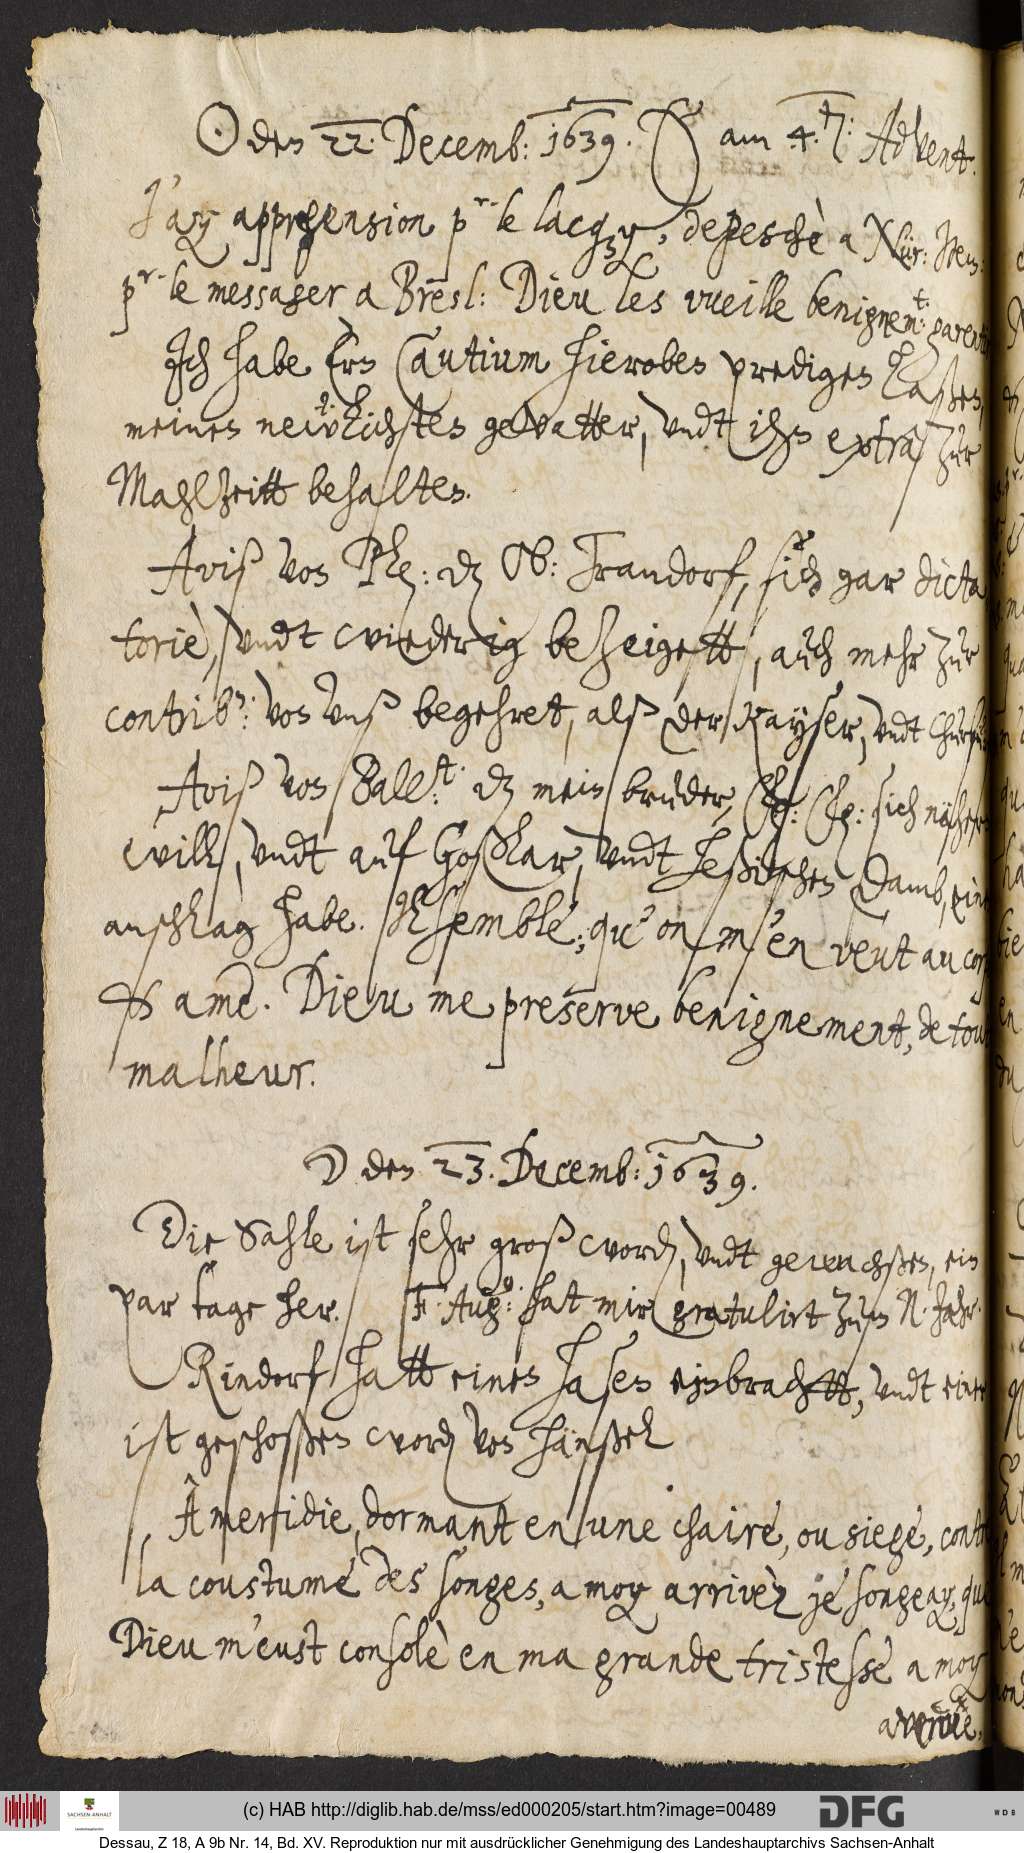 ☉ den 22. Decemb: 1639. am 4.t: Advent.
J'ay apprehension pr. le lacqz, depeschè a Nür: Item:
pr. le messager a Bresl: Dieu les vueille benignem:t garentir
Jch habe Ern Cautium hieroben predigen laßen,
meinen newlichsten gevatter, vndt ihn extra zur
Mahlzeitt behalten.
Aviß von Ple: dz Ob: Trandorf, sich gar dicta
toriè, vndt wiederig bezeigett, auch mehr zur
contrib: von vnß begehret, alß der Kayser, vndt Churfür
Aviß von Ball:t dz mein bruder, sich näher
will, vndt auf Goßlar, vndt heßischen Damb, ein
anschlag habe. Il semble, qu'on m'en veut au corps
& ame. Dieu me preserve benignement, de tout
malheur.
☽ den 23. Decemb: 1639.
Die Sahle ist sehr groß word, vndt gewachßen, ein
par tage her. F. Aug: hat mir gratulirt zum N. Jahr.
Rindorf hatt einen hasen einbrachtt, vndt einer
ist geschoßen word von hänßel
A meridie, dormant en une chaire, ou siege, contre
la coustume des songes, a moy arrivèz je songeay, que
Dieu m'eust consolè en ma grande tristesse a moy
(c) HAB http://diglib.hab.de/mss/ed000205/start.htm?image=00489
SACHSEN-ANHALT
DFG
WDB
Dessau, Z 18, A 9b Nr. 14, Bd. XV. Reproduktion nur mit ausdrücklicher Genehmigung des Landeshauptarchivs Sachsen-Anhalt